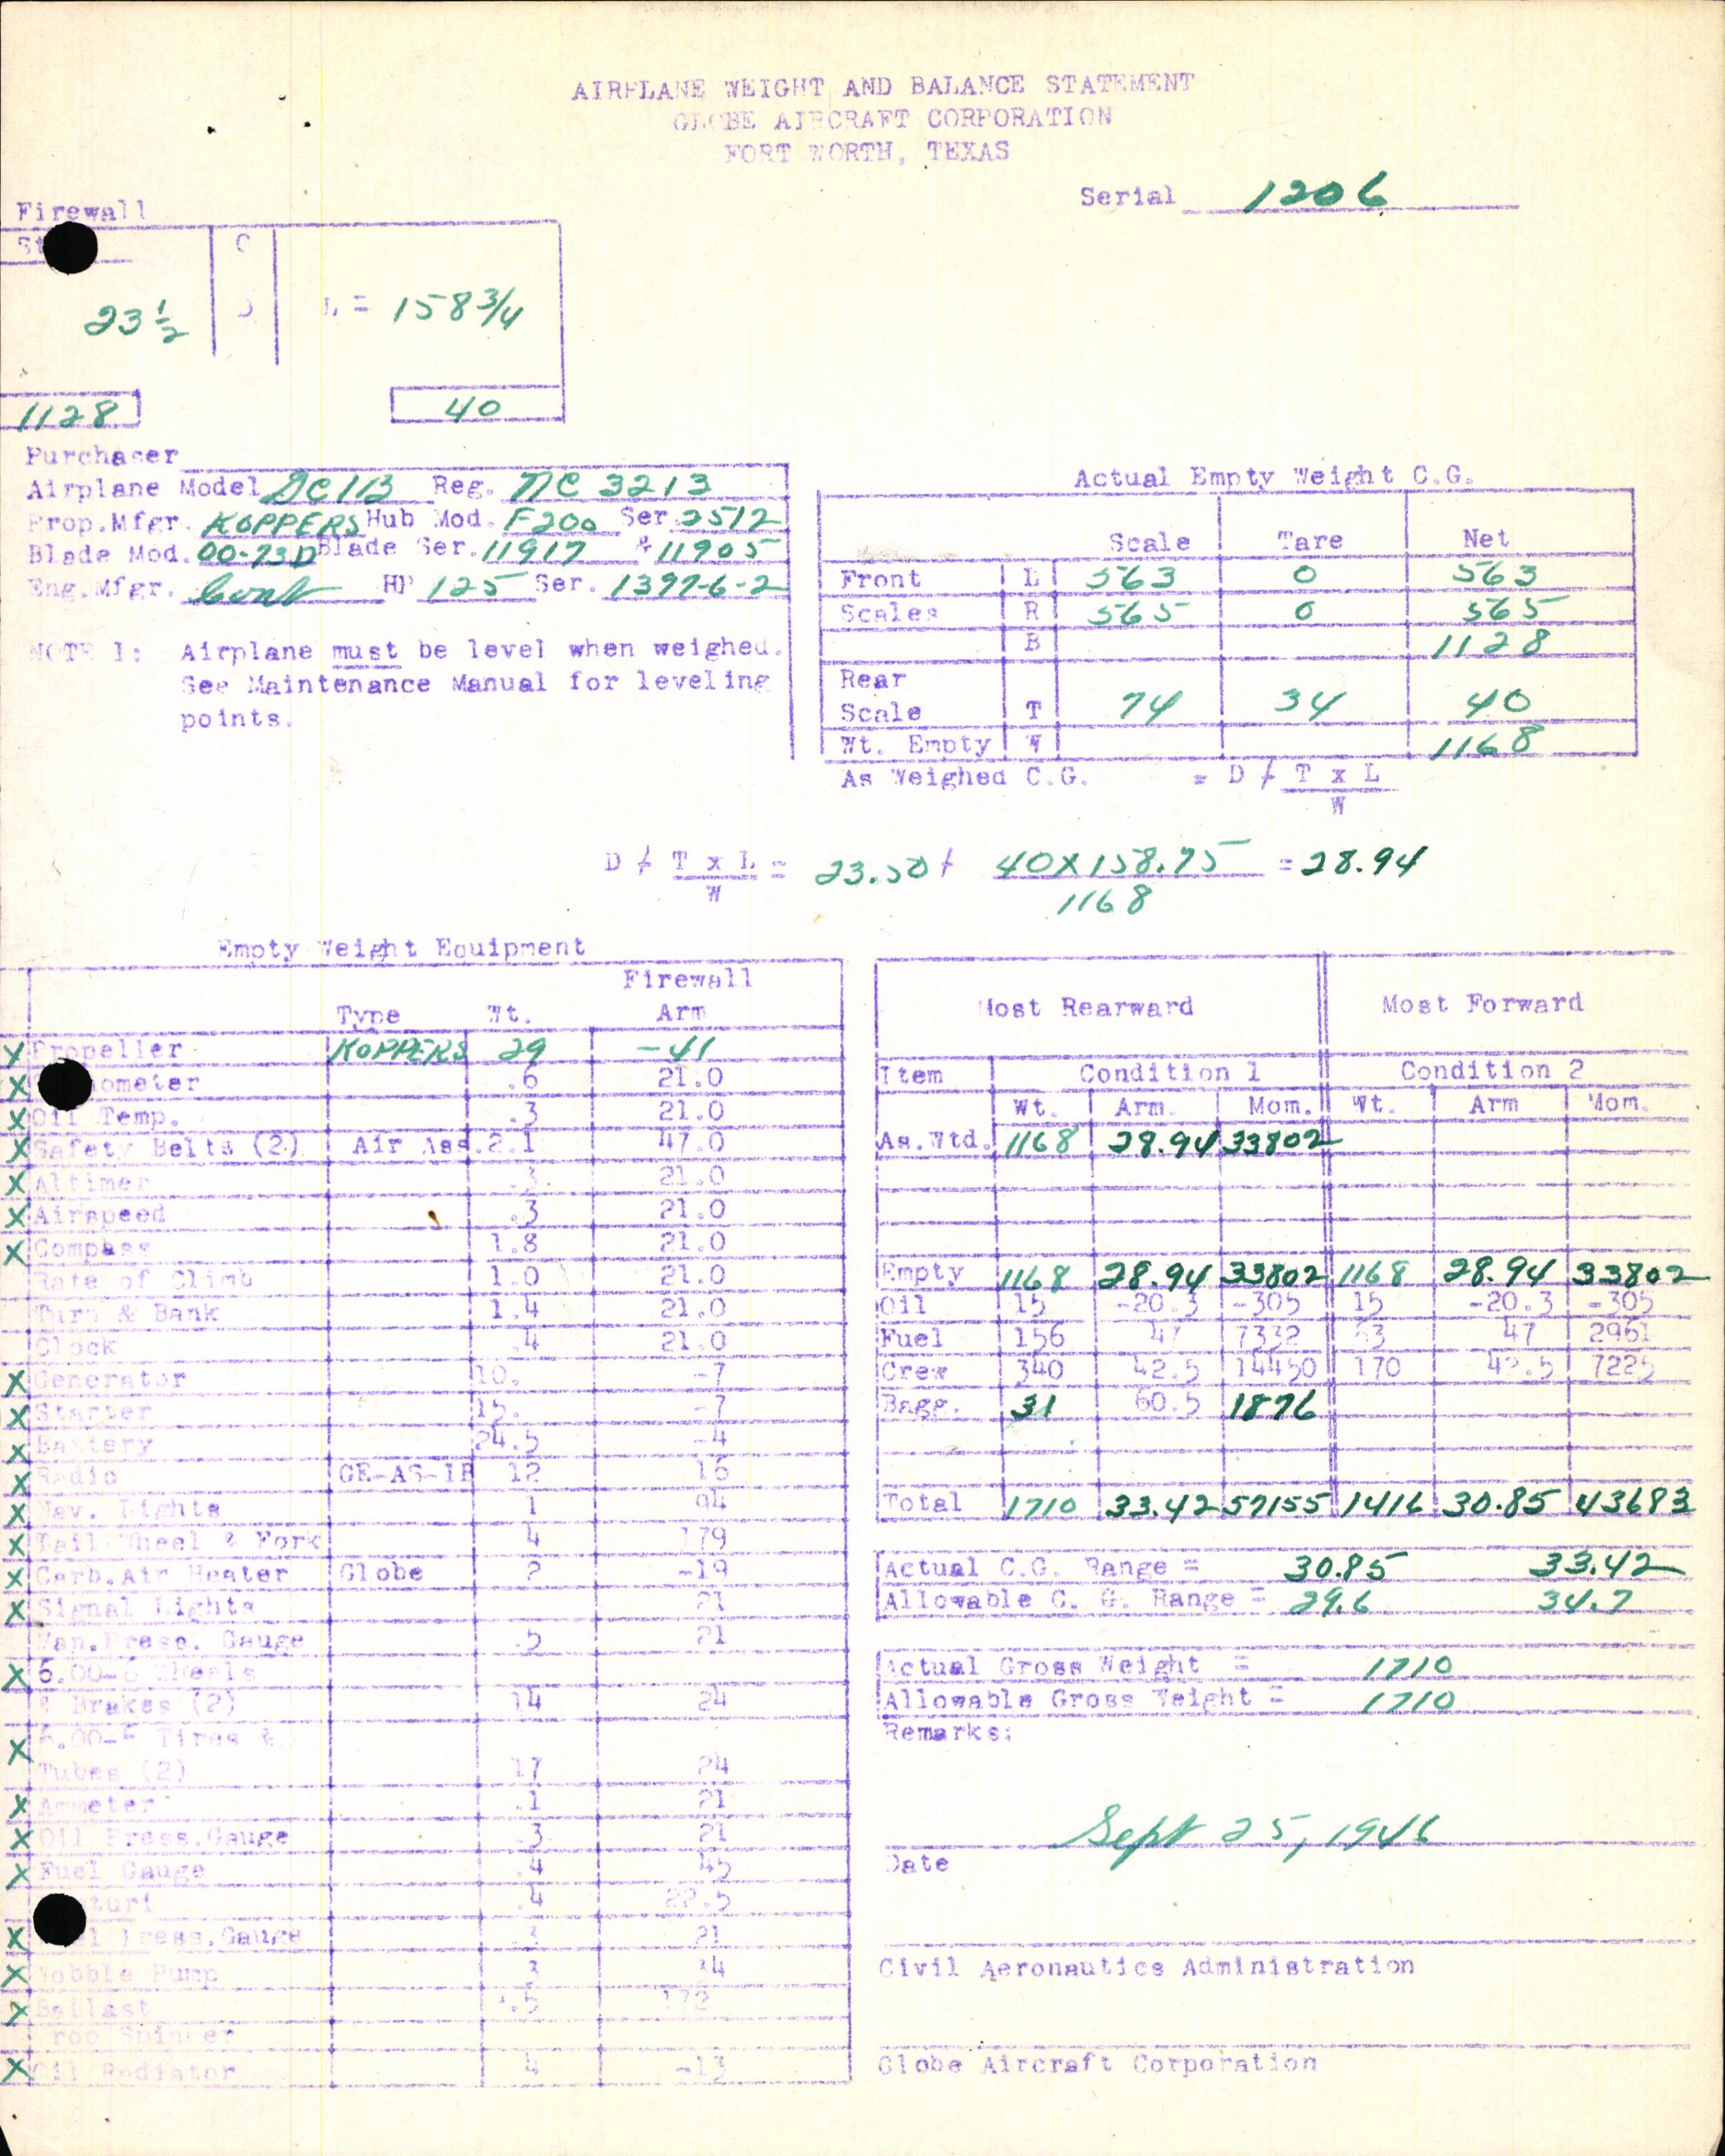 AIRPLANE WEIGHT AND BALANCE STATEMENT
GLOBE AIRCRAFT CORPORATION
FORT WORTH, TEXAS
Serial 1206
Firewall
C
23 1/2 D L = 158 3/4
1128 40
Purchaser
Airplane Model GC1B Reg. NC 3213
Prop.Mfgr. KOPPERS Hub Mod. F200 Ser. 2512
Blade Mod. 00-73D Blade Ser. 11917 & 11905
Eng.Mfgr. Cont HP 125 Ser.
NOTE 1: Airplane must be level when weighed.
See Maintenance Manual for leveling
points.
Actual Empty Weight C.G.
Scale Tare Net
Front L 563 0 563
Scales R 565 0 565
B 1128
Rear
Scale T 74 34 40
Wt. Empty W 1168
As Weighed C.G. = D + T x L
W
D + T x L = 23.50 + 40X158.75 = 28.94
W 1168
Empty Weight Equipment
Firewall
Type Wt. Arm
X Propeller KOPPERS 29 -41
X .6 21.0
X Oil Temp. .3 21.0
X Safety Belts (2) Air Ass. 2.1 47.0
X Altimer .3 21.0
X Airspeed .3 21.0
X Compass 1.8 21.0
Rate of Climb 1.0 21.0
Turn & Bank 1.4 21.0
Clock .4 21.0
X Generator 10. -7
X Starter 15. -7
X Battery 24.5 -4
X Radio GE-AS-1B 12 16
X Nav. Lights 1 94
X Tail Wheel & Fork 4 179
X Carb.Air Heater Globe 2 -19
X Signal Lights 21
Man.Press. Gauge .5 21
X 6.00-6 Wheels
& Brakes (2) 14 24
X Tires &
Tubes (2) 17 24
X Ammeter .1 21
X Oil Press.Gauge .3 21
X Fuel Gauge .4 45
.4 22.5
X Press.Gauge .3 21
X Wobble Pump 3
X Ballast 172
Prop Spinner
X Oil Radiator 4 -13
Most Rearward Most Forward
Item Condition 1 Condition 2
Wt. Arm. Mom. Wt. Arm Mom.
As.Wtd. 1168 28.94 33802
Empty 1168 28.94 33802 1168 28.94 33802
Oil 15 -20.3 -305 15 -20.3 -305
Fuel 156 47 7332 63 47 2961
Crew 340 42.5 14450 170 42.5 7225
Bagg. 31 60.5 1876
Total 1710 33.42 57155 1416 30.85 43683
Actual C.G. Range = 30.85 33.42
Allowable C. G. Range = 29.6 34.7
Actual Gross Weight = 1710
Allowable Gross Weight = 1710
Remarks:
Sept 25, 1946
Date
Civil Aeronautics Administration
Globe Aircraft Corporation